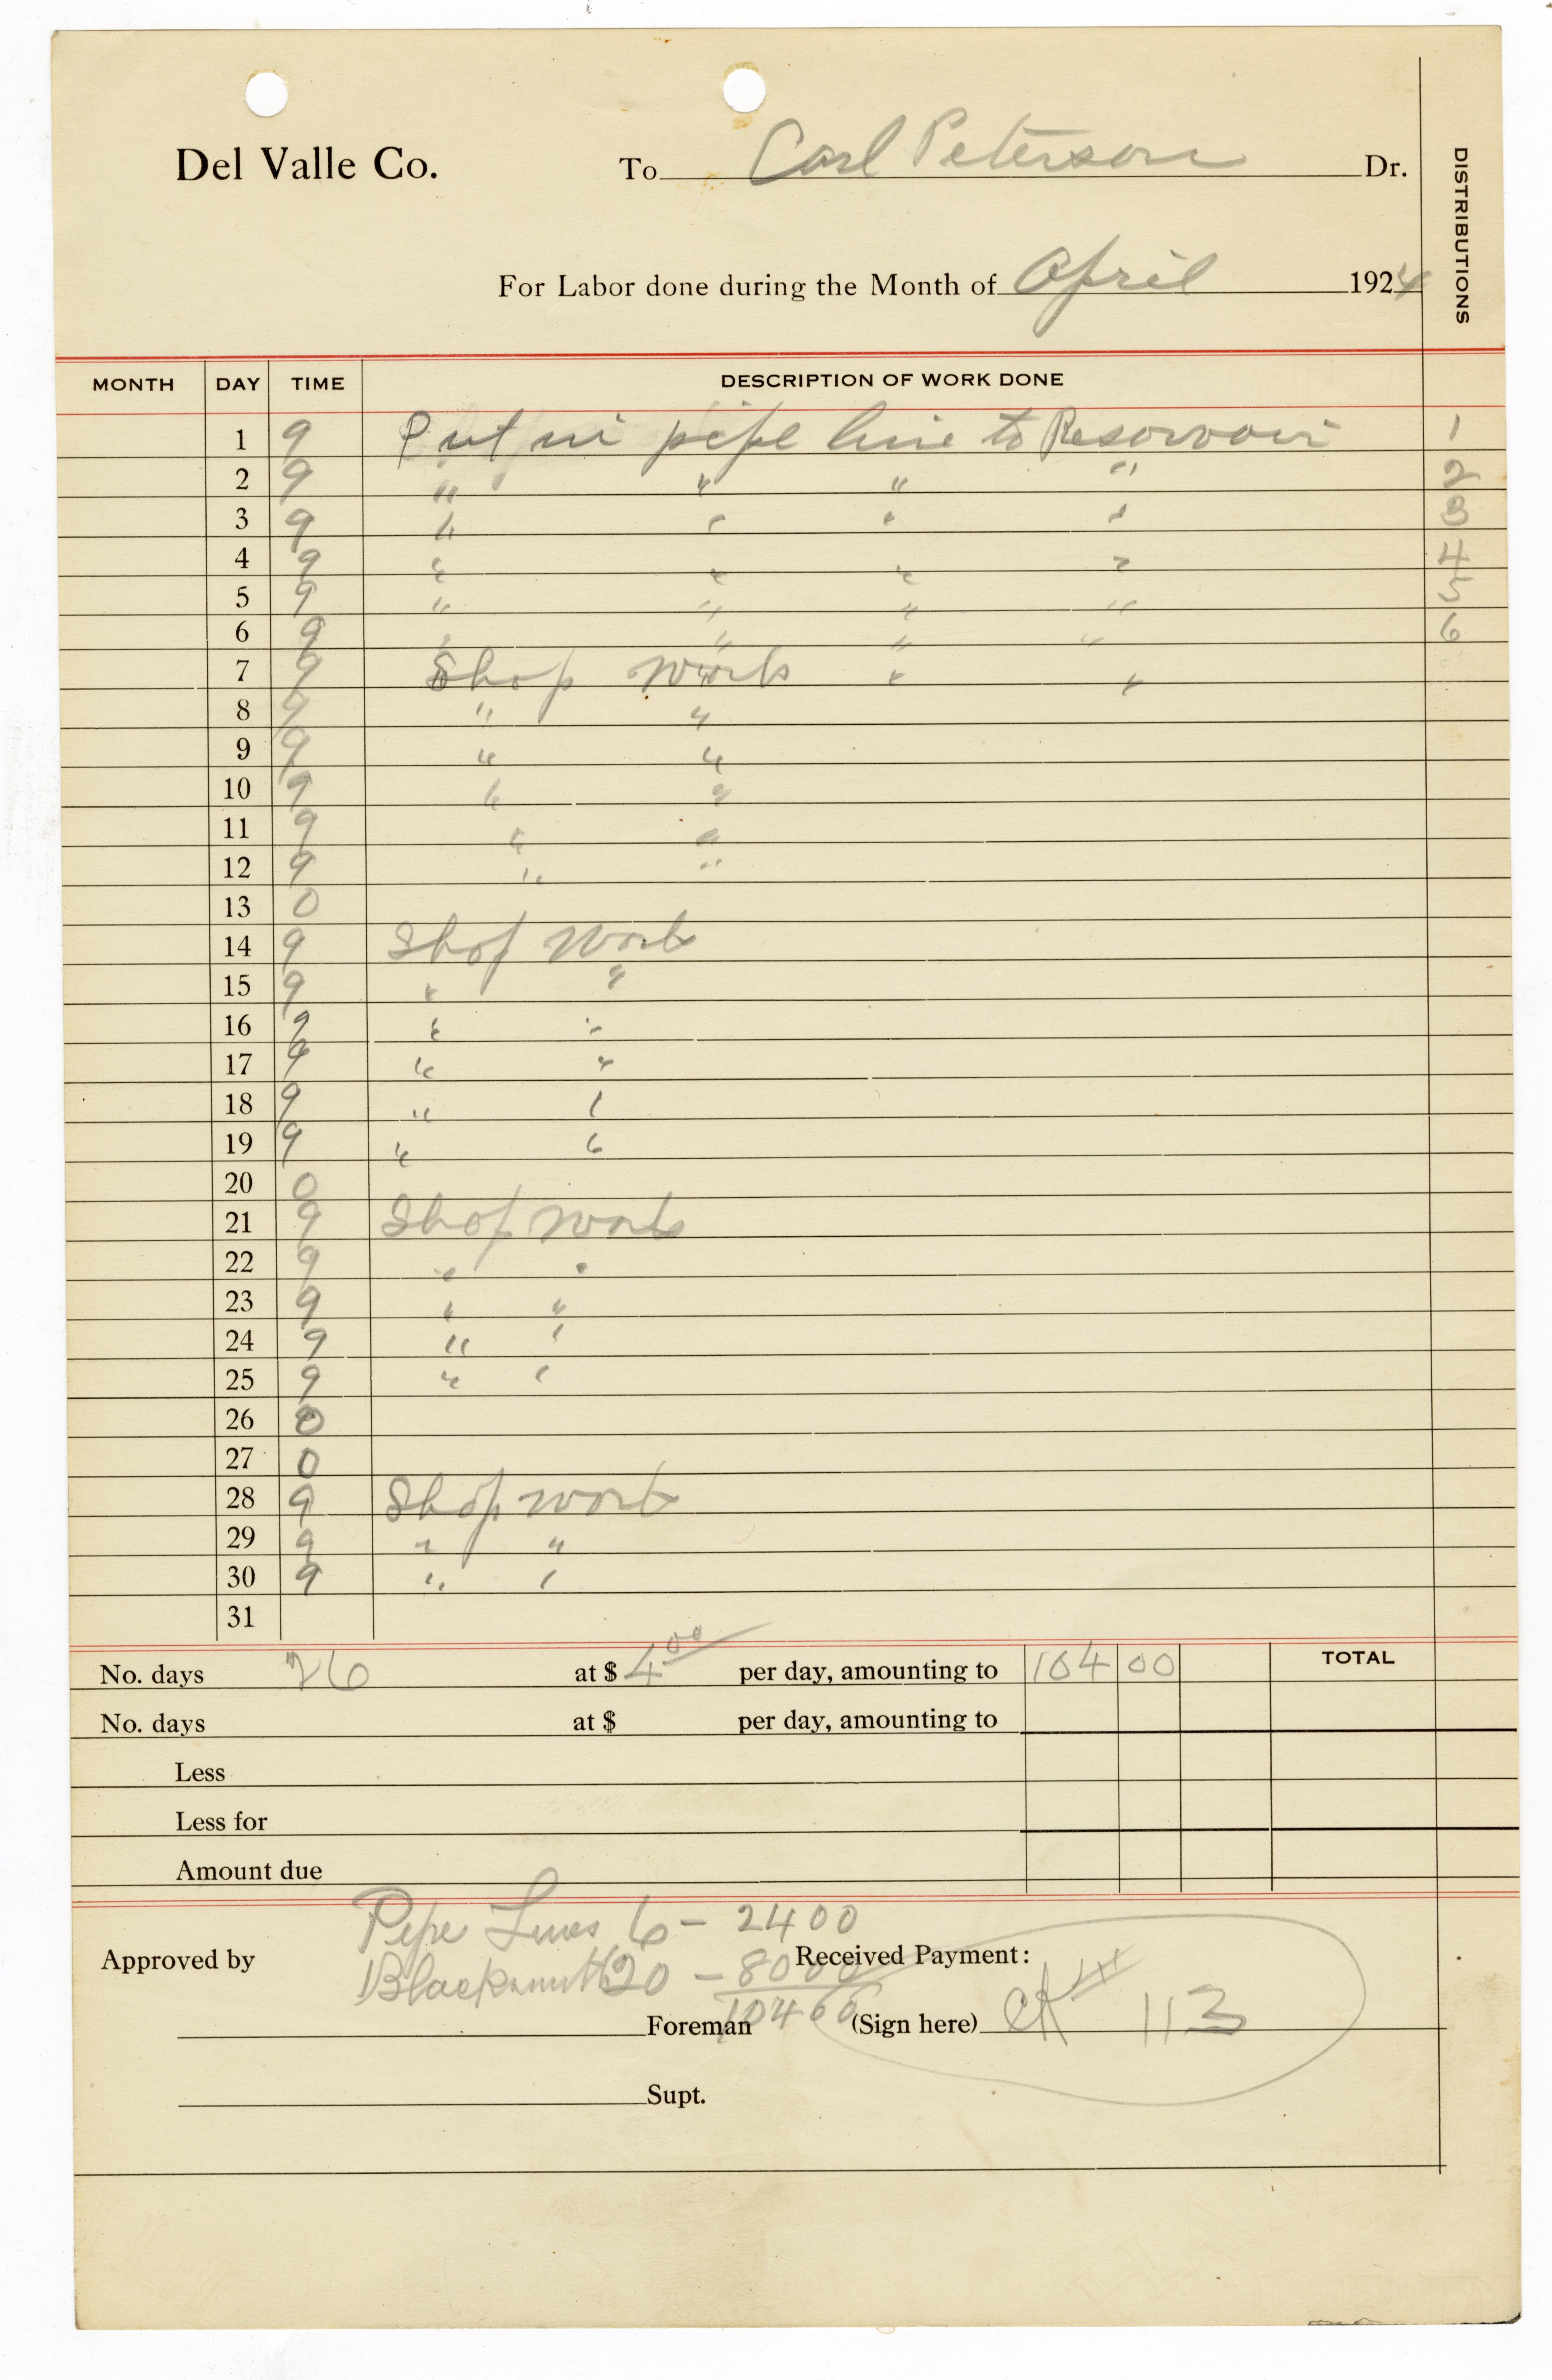 Del Valle Co. To Carl Peterson Dr.
DISTRIBUTIONS
For Labor done during the Month of April 1924
MONTH DAY TIME DESCRIPTION OF WORK DONE
1 9 Put in pipe line to Resorvoir 1
2 9 " " " " 2
3 9 " " " " 3
4 9 " " " " 4
5 9 " " " " 5
6 9 " " " " 6
7 9 Shop Work " "
8 9 " "
9 9 " "
10 9 " "
11 9 " "
12 9 " "
13 0
14 9 Shop Work
15 9 " "
16 9 " "
17 9 " "
18 9 " "
19 9 " "
20 0
21 9 Shop Work
22 9 " "
23 9 " "
24 9 " "
25 9 " "
26 0
27 0
28 9 Shop work
29 9 " "
30 9 " "
31
No. days 26 at $ 4 00 per day, amounting to 104 00 TOTAL
No. days at $ per day, amounting to
Less
Less for
Amount due
Pipe Lines 6 - 24 00
Approved by Blacksmith 20 - 80 00 Received Payment:
104 00
Foreman (Sign here) CK # 113
Supt.